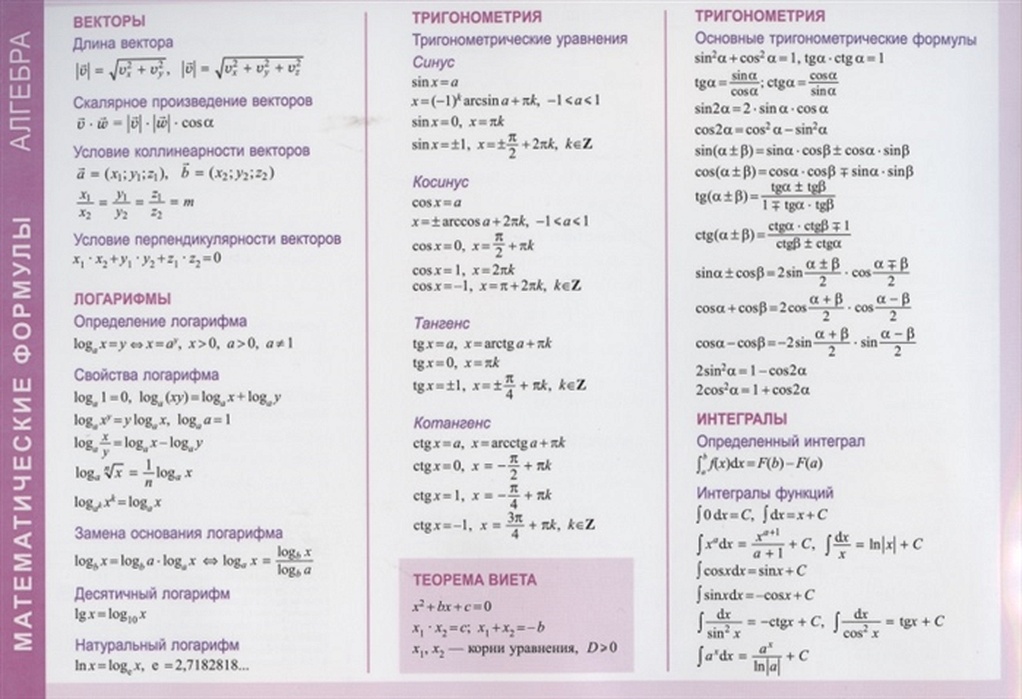 МАТЕМАТИЧЕСКИЕ ФОРМУЛЫ АЛГЕБРА
ВЕКТОРЫ
Длина вектора
|v⃗| = √(vₓ² + v_y²), |v⃗| = √(vₓ² + v_y² + v_z²)
Скалярное произведение векторов
v⃗ · w⃗ = |v⃗| · |w⃗| · cosα
Условие коллинеарности векторов
a⃗ = (x₁; y₁; z₁), b⃗ = (x₂; y₂; z₂)
x₁/x₂ = y₁/y₂ = z₁/z₂ = m
Условие перпендикулярности векторов
x₁ · x₂ + y₁ · y₂ + z₁ · z₂ = 0
ЛОГАРИФМЫ
Определение логарифма
logₐ x = y ⇔ x = a^y, x>0, a>0, a≠1
Свойства логарифма
logₐ 1 = 0, logₐ (xy) = logₐ x + logₐ y
logₐ x^y = y logₐ x, logₐ a = 1
logₐ x/y = logₐ x – logₐ y
logₐ ⁿ√x = 1/n logₐ x
log_{a^k} x^k = logₐ x
Замена основания логарифма
log_b x = log_b a · logₐ x ⇔ logₐ x = log_b x / log_b a
Десятичный логарифм
lg x = log₁₀ x
Натуральный логарифм
ln x = logₑ x, e = 2,7182818...
ТРИГОНОМЕТРИЯ
Тригонометрические уравнения
Синус
sin x = a
x = (–1)^k arcsin a + πk, –1 < a < 1
sin x = 0, x = πk
sin x = ±1, x = ± π/2 + 2πk, k∈Z
Косинус
cos x = a
x = ± arccos a + 2πk, –1 < a < 1
cos x = 0, x = π/2 + πk
cos x = 1, x = 2πk
cos x = –1, x = π + 2πk, k∈Z
Тангенс
tg x = a, x = arctg a + πk
tg x = 0, x = πk
tg x = ±1, x = ± π/4 + πk, k∈Z
Котангенс
ctg x = a, x = arcctg a + πk
ctg x = 0, x = – π/2 + πk
ctg x = 1, x = – π/4 + πk
ctg x = –1, x = 3π/4 + πk, k∈Z
ТЕОРЕМА ВИЕТА
x² + bx + c = 0
x₁ · x₂ = c; x₁ + x₂ = –b
x₁, x₂ — корни уравнения, D>0
ТРИГОНОМЕТРИЯ
Основные тригонометрические формулы
sin²α + cos²α = 1, tgα · ctgα = 1
tgα = sinα/cosα; ctgα = cosα/sinα
sin2α = 2 · sinα · cosα
cos2α = cos²α – sin²α
sin(α ± β) = sinα · cosβ ± cosα · sinβ
cos(α ± β) = cosα · cosβ ∓ sinα · sinβ
tg(α ± β) = (tgα ± tgβ)/(1 ∓ tgα · tgβ)
ctg(α ± β) = (ctgα · ctgβ ∓ 1)/(ctgβ ± ctgα)
sinα ± cosβ = 2sin (α ± β)/2 · cos (α ∓ β)/2
cosα + cosβ = 2cos (α + β)/2 · cos (α – β)/2
cosα – cosβ = –2sin (α + β)/2 · sin (α – β)/2
2sin²α = 1 – cos2α
2cos²α = 1 + cos2α
ИНТЕГРАЛЫ
Определенный интеграл
∫ₐᵇ f(x)dx = F(b) – F(a)
Интегралы функций
∫0 dx = C, ∫dx = x + C
∫xᵃdx = x^(a+1)/(a+1) + C, ∫dx/x = ln|x| + C
∫cosxdx = sinx + C
∫sinxdx = –cosx + C
∫dx/sin²x = –ctgx + C, ∫dx/cos²x = tgx + C
∫aˣdx = aˣ/ln|a| + C